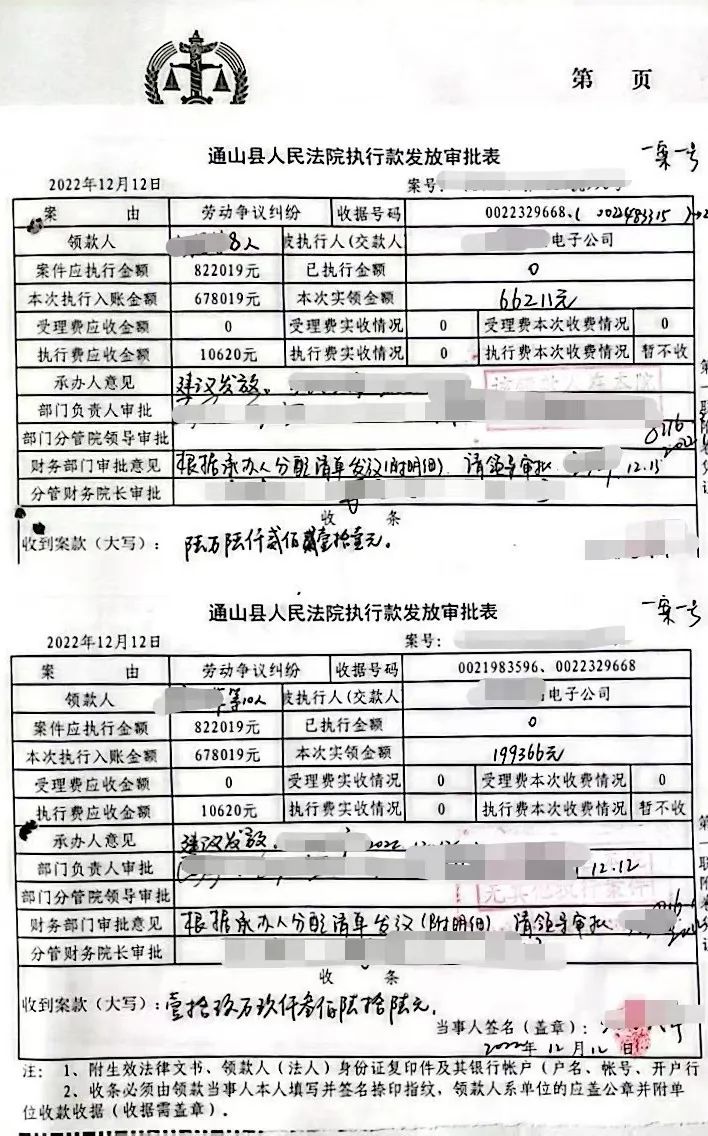 第 页
通山县人民法院执行款发放审批表
一案一号
2022年12月12日 案号：
案 由 劳动争议纠纷 收据号码 0022329668、(0022483315)
领款人 8人 被执行人(交款人 电子公司
案件应执行金额 822019元 已执行金额 0
本次执行入账金额 678019元 本次实领金额 66211元
受理费应收金额 0 受理费实收情况 0 受理费本次收费情况 0
执行费应收金额 10620元 执行费实收情况 0 执行费本次收费情况 暂不收
承办人意见 建议发放。
部门负责人审批
部门分管院领导审批
财务部门审批意见 根据承办人分配清单发放(附明细) 请领导审批 12.15
分管财务院长审批
收 条
收到案款（大写）： 陆万陆仟贰佰壹拾壹元。
通山县人民法院执行款发放审批表
一案一号
2022年12月12日 案号：
案 由 劳动争议纠纷 收据号码 0021983596、0022329668
领款人 等10人 被执行人(交款人 电子公司
案件应执行金额 822019元 已执行金额 0
本次执行入账金额 678019元 本次实领金额 199366元
受理费应收金额 0 受理费实收情况 0 受理费本次收费情况 0
执行费应收金额 10620元 执行费实收情况 0 执行费本次收费情况 暂不收
承办人意见 建议发放.
部门负责人审批 12.12
无其他执行案件
部门分管院领导审批
财务部门审批意见 根据承办人分配清单发放(附明细) 请领导审批
分管财务院长审批
收 条
收到案款（大写）：壹拾玖万玖仟叁佰陆拾陆元.
当事人签名（盖章）：
2022年12月12日
注：1、附生效法律文书、领款人（法人）身份证复印件及其银行帐户（户名、帐号、开户行
2、收条必须由领款当事人本人填写并签名捺印指纹，领款人系单位的应盖公章并附单
位收款收据（收据需盖章）。